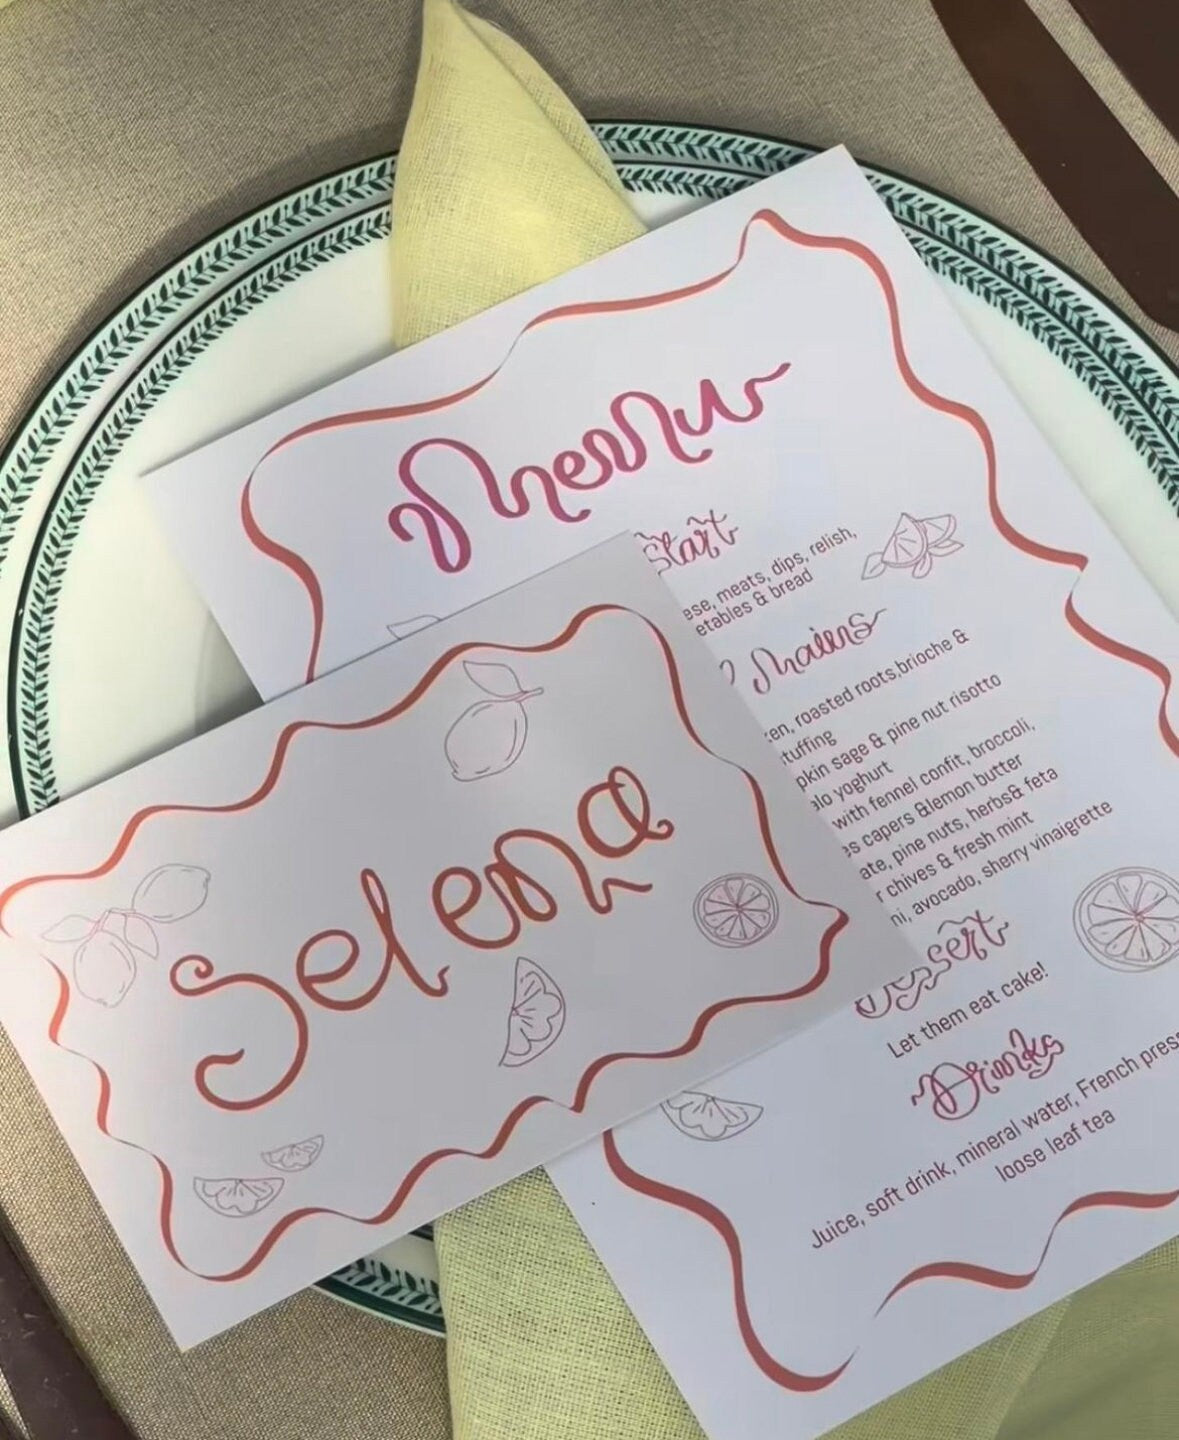 Menu
Start
meats, dips, relish,
& bread
Mains
roasted roots,brioche &
sage & pine nut risotto
yoghurt
with fennel confit, broccoli,
capers &lemon butter
pine nuts, herbs& feta
chives & fresh mint
avocado, sherry vinaigrette
Dessert
Let them eat cake!
Drinks
Juice, soft drink, mineral water, French press
loose leaf tea
Selena